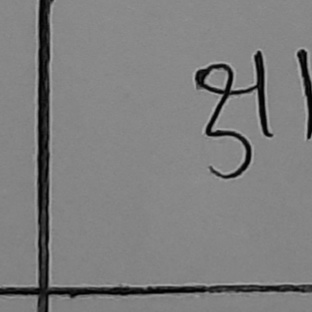 ક્ષા